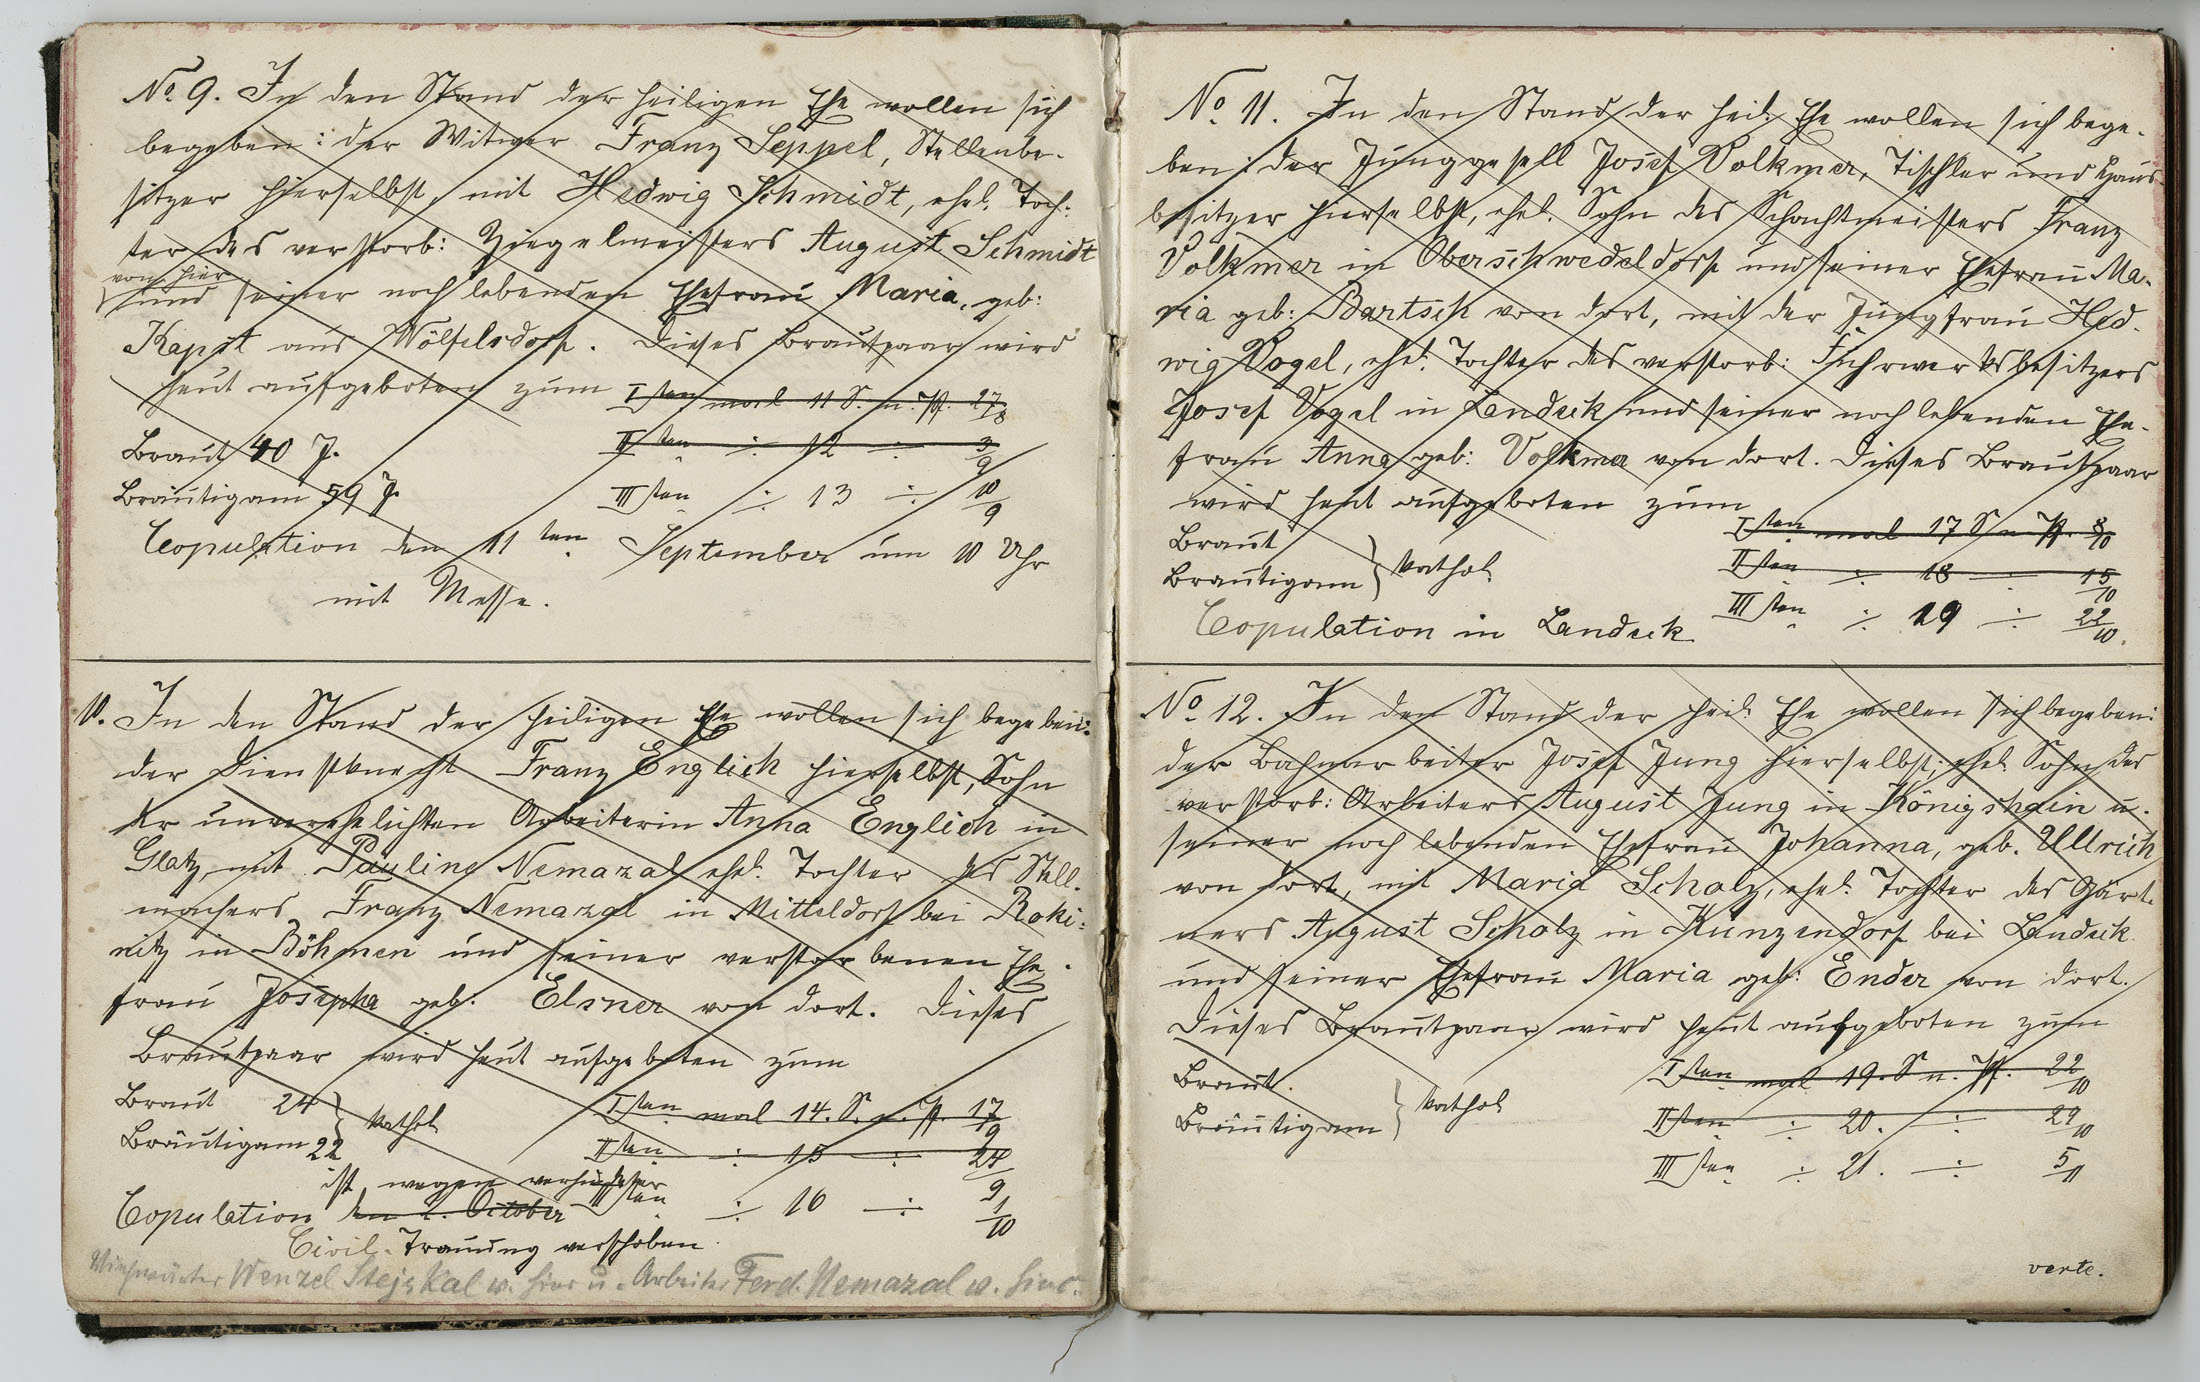 No. 9. In den Stand der heiligen Ehe wollen sich
begeben: der Witwer Franz Seppel, Stellenbe-
sitzer hierselbst, mit Hedwig Schmidt, ehel. Toch-
ter des verstorb: Ziegelmeisters August Schmidt
von hier
und seiner noch lebenden Ehefrau Maria, geb:
Kapst aus Wölfelsdorf. Dieses Brautpaar wird
heut aufgeboten zum
Isten mal 11 S. n. Pf. 27/8
IIsten ÷ 12 ÷ 3/9
IIIsten ÷ 13 ÷ 10/9
Braut 40 J.
Bräutigam 59 J.
Copulation den 11ten September um 10 Uhr
mit Messe.
10. In den Stand der heiligen Ehe wollen sich begeben:
der Dienstknecht Franz Englich hierselbst, Sohn
der unverehelichten Arbeiterin Anna Englich in
Glatz, mit Pauline Nemazal ehel. Tochter des Stell-
machers Franz Nemazal in Mitteldorf bei Roki-
nitz in Böhmen und seiner verstorbenen Ehe-
frau Josepha geb: Elsner von dort. Dieses
Brautpaar wird heut aufgeboten zum
Isten mal 14. S. n. Pf. 17/9
IIsten ÷ 15 ÷ 24/9
IIIsten ÷ 16 ÷ 1/10
Braut 24
Bräutigam 22 } kathol.
ist wegen verhinderter
Copulation den 2. October
Civil-Trauung verschoben.
Wenzel Stejskal v. hier u. Arbeiter Ferd. Nemazal v. hier.
No. 11. In den Stand der heil. Ehe wollen sich bege-
ben: der Junggesell Josef Volkmer, Tischler und Haus-
besitzer hierselbst, ehel. Sohn des Schachtmeisters Franz
Volkmer in Oberschwedeldorf und seiner Ehefrau Ma-
ria geb: Bartsch von dort, mit der Jungfrau Hed-
wig Vogel, ehel. Tochter des verstorb: Fuhrwerksbesitzers
Josef Vogel in Landeck und seiner noch lebenden Ehe-
frau Anna geb: Volkmer von dort. Dieses Brautpaar
wird heut aufgeboten zum
Isten mal 17 S n. Pf. 8/10
IIsten ÷ 18 ÷ 15/10
IIIsten ÷ 19 ÷ 22/10.
Braut
Bräutigam } kathol.
Copulation in Landeck
No. 12. In den Stand der heil. Ehe wollen sich begeben:
der Bahnarbeiter Josef Jung hierselbst, ehel. Sohn des
verstorb: Arbeiters August Jung in Königshain u.
seiner noch lebenden Ehefrau Johanna, geb. Ullrich
von dort, mit Maria Scholz, ehel. Tochter des Gärt-
ners August Scholz in Kunzendorf bei Landeck
und seiner Ehefrau Maria geb: Ender von dort.
Dieses Brautpaar wird heut aufgeboten zum
Isten mal 19. S n. Pf. 22/10
IIsten ÷ 20. ÷ 29/10
IIIsten ÷ 21. ÷ 5/11
Braut.
Bräutigam } kathol
verte.